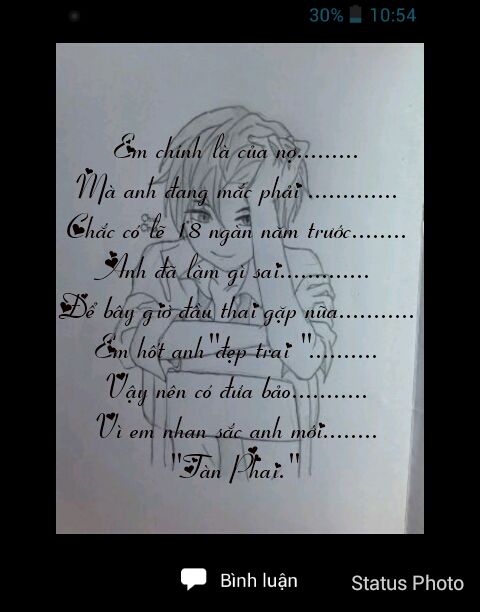 30% 10:54
Em chính là của nợ.........
Mà anh đang mắc phải .............
Chắc có lẽ 18 ngàn năm trước........
Anh đã làm gì sai.............
Để bây giờ đầu thai gặp nữa...........
Em hốt anh "đẹp trai "..........
Vậy nên có đưa bảo...........
Vì em nhan sắc anh mới........
"Tàn Phai."
Bình luận
Status Photo